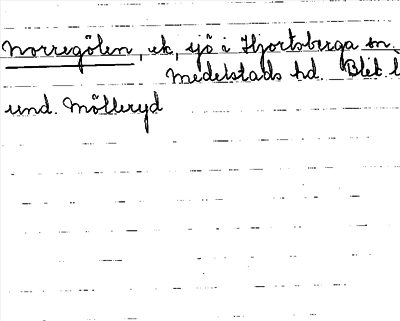 Norregölen, ek, sjö i Hjortsberga sn.
Medelstads hd. Blek. l
und. Mölleryd